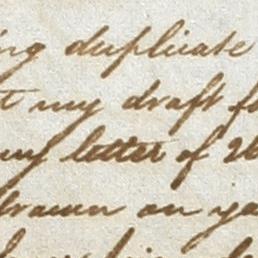 ing duplicate
t my draft f
my letter of 26
drawn on yo